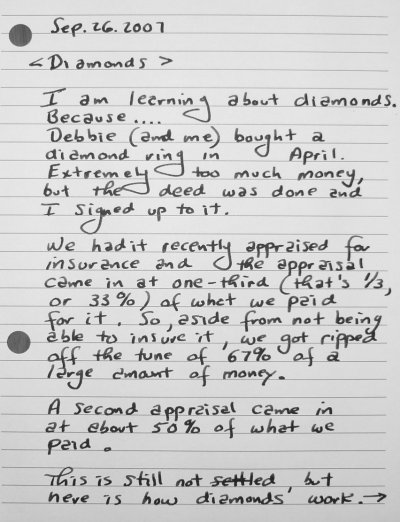 Sep. 26. 2007
<Diamonds>
I am learning about diamonds.
Because....
Debbie (and me) bought a
diamond ring in April.
Extremely too much money,
but the deed was done and
I signed up to it.
We had it recently appraised for
insurance and the appraisal
came in at one-third (that's 1/3,
or 33%) of what we paid
for it. So, aside from not being
able to insure it, we got ripped
off the tune of 67% of a
large amount of money.
A second appraisal came in
at about 50% of what we
paid.
This is still not settled, but
here is how diamonds work. →